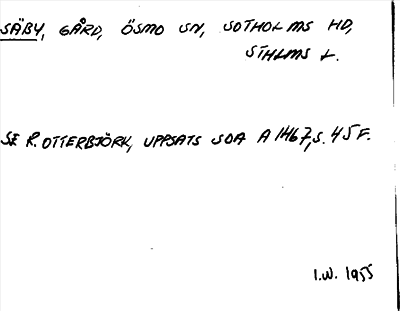 SÄBY, GÅRD, ÖSMO SN, SOTHOLMS HD,
STHLMS L.
SE R. OTTERBJÖRK, UPPSATS SOA A 1467, S. 45 F.
I.W. 1955